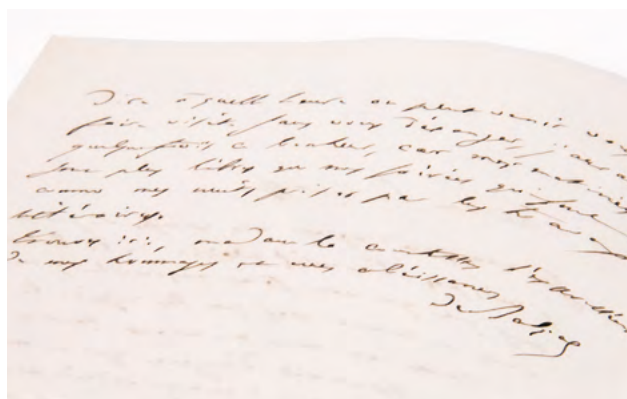 Dire à quelle heure on peut venir vous
faire visite sans vous déranger, j'aurai
quelquefois ce bonheur, car mes matinées
sont plus libres que mes soirées qui sont
comme mes nuits prises par les travaux
littéraires.
trouvez ici, madame la comtesse, l'expression
de mes hommages et mes obéissances
de Balzac